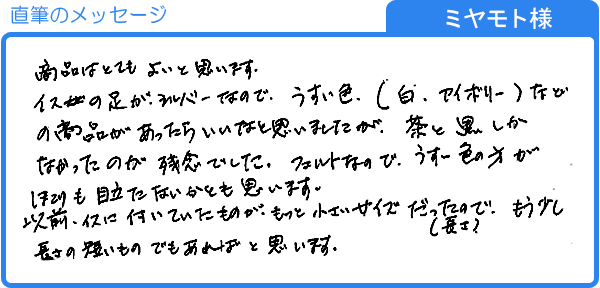 直筆のメッセージ
ミヤモト様
商品はとてもよいと思います。
イス女の足が、シルバーなので、うすい色、(白、アイボリー)など
の商品があったらいいなと思いましたが、茶と黒しか
なかったのが残念でした。フェルトなので、うすい色の方が
ほこりも目立たないかとも思います。
以前、イスに付いていたものが、もっと小さいサイズだったので、もう少し
(長さ)
長さの短いものでもあればと思います。